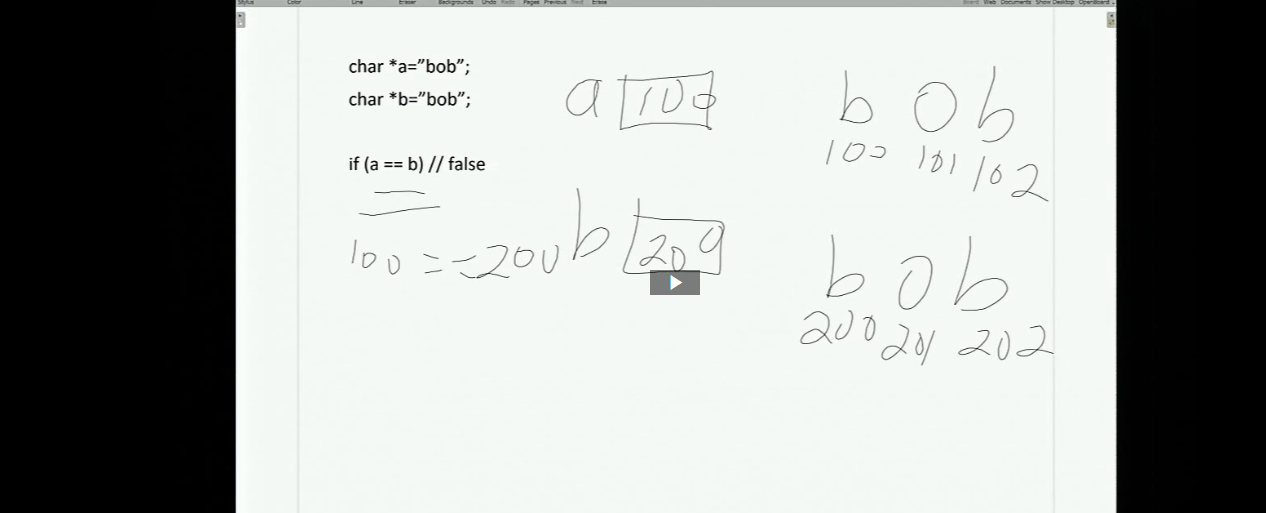 Stylus Color Line Eraser Backgrounds Undo Redo Pages Previous Next Erase Board Web Documents Show Desktop OpenBoard
char *a=”bob”;
char *b=”bob”;
a 100
b o b
100 101 102
if (a == b) // false
100 == 200
b 200
b o b
200 201 202